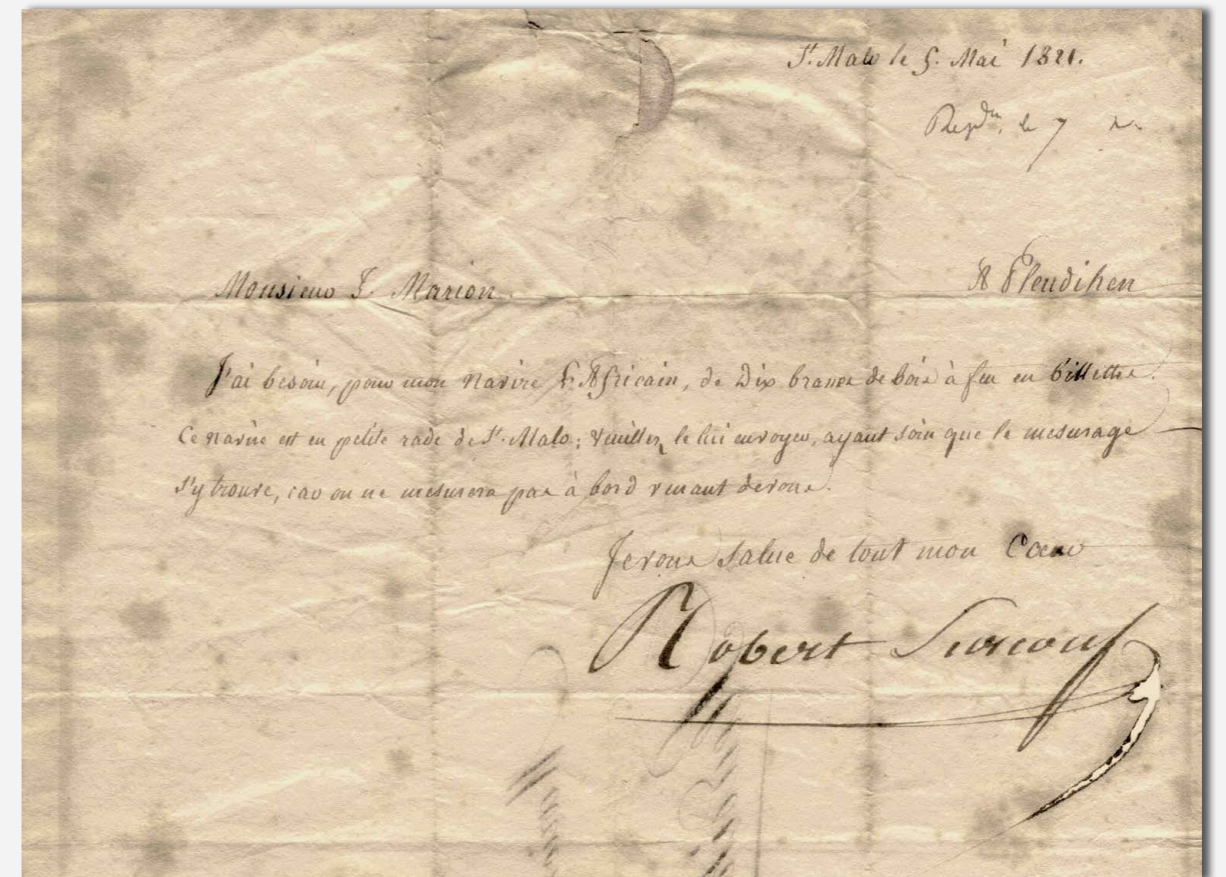 St. Malo le 5. Mai 1821.
Repdu. le 7
Monsieur F. Marion
A Pleudihen
J'ai besoin, pour mon navire L'Africain, de Dix brasses de bois à feu en billettes.
Ce navire est en petite rade de St. Malo; Veuillez le lui envoyer, ayant soin que le mesurage
s'y trouve, car on ne mesurera pas à bord venant de vous.
Je vous salue de tout mon Coeur
Robert Surcouf